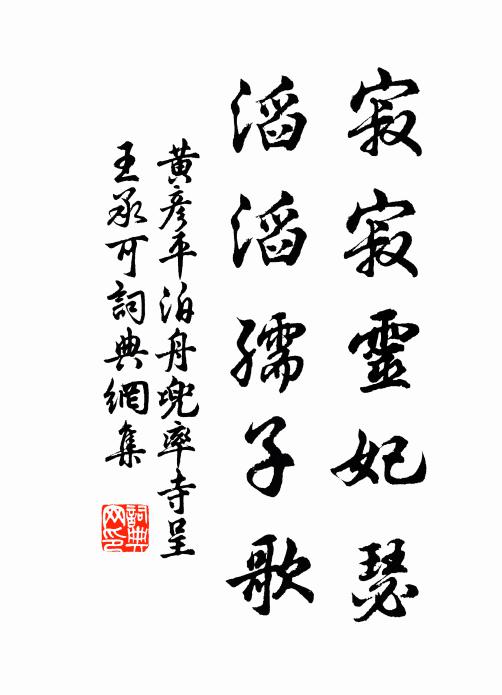 寂寂靈妃瑟
滔滔孺子歌
黃彥平泊舟兜率寺呈
王承可詞典網集
詞典
网印